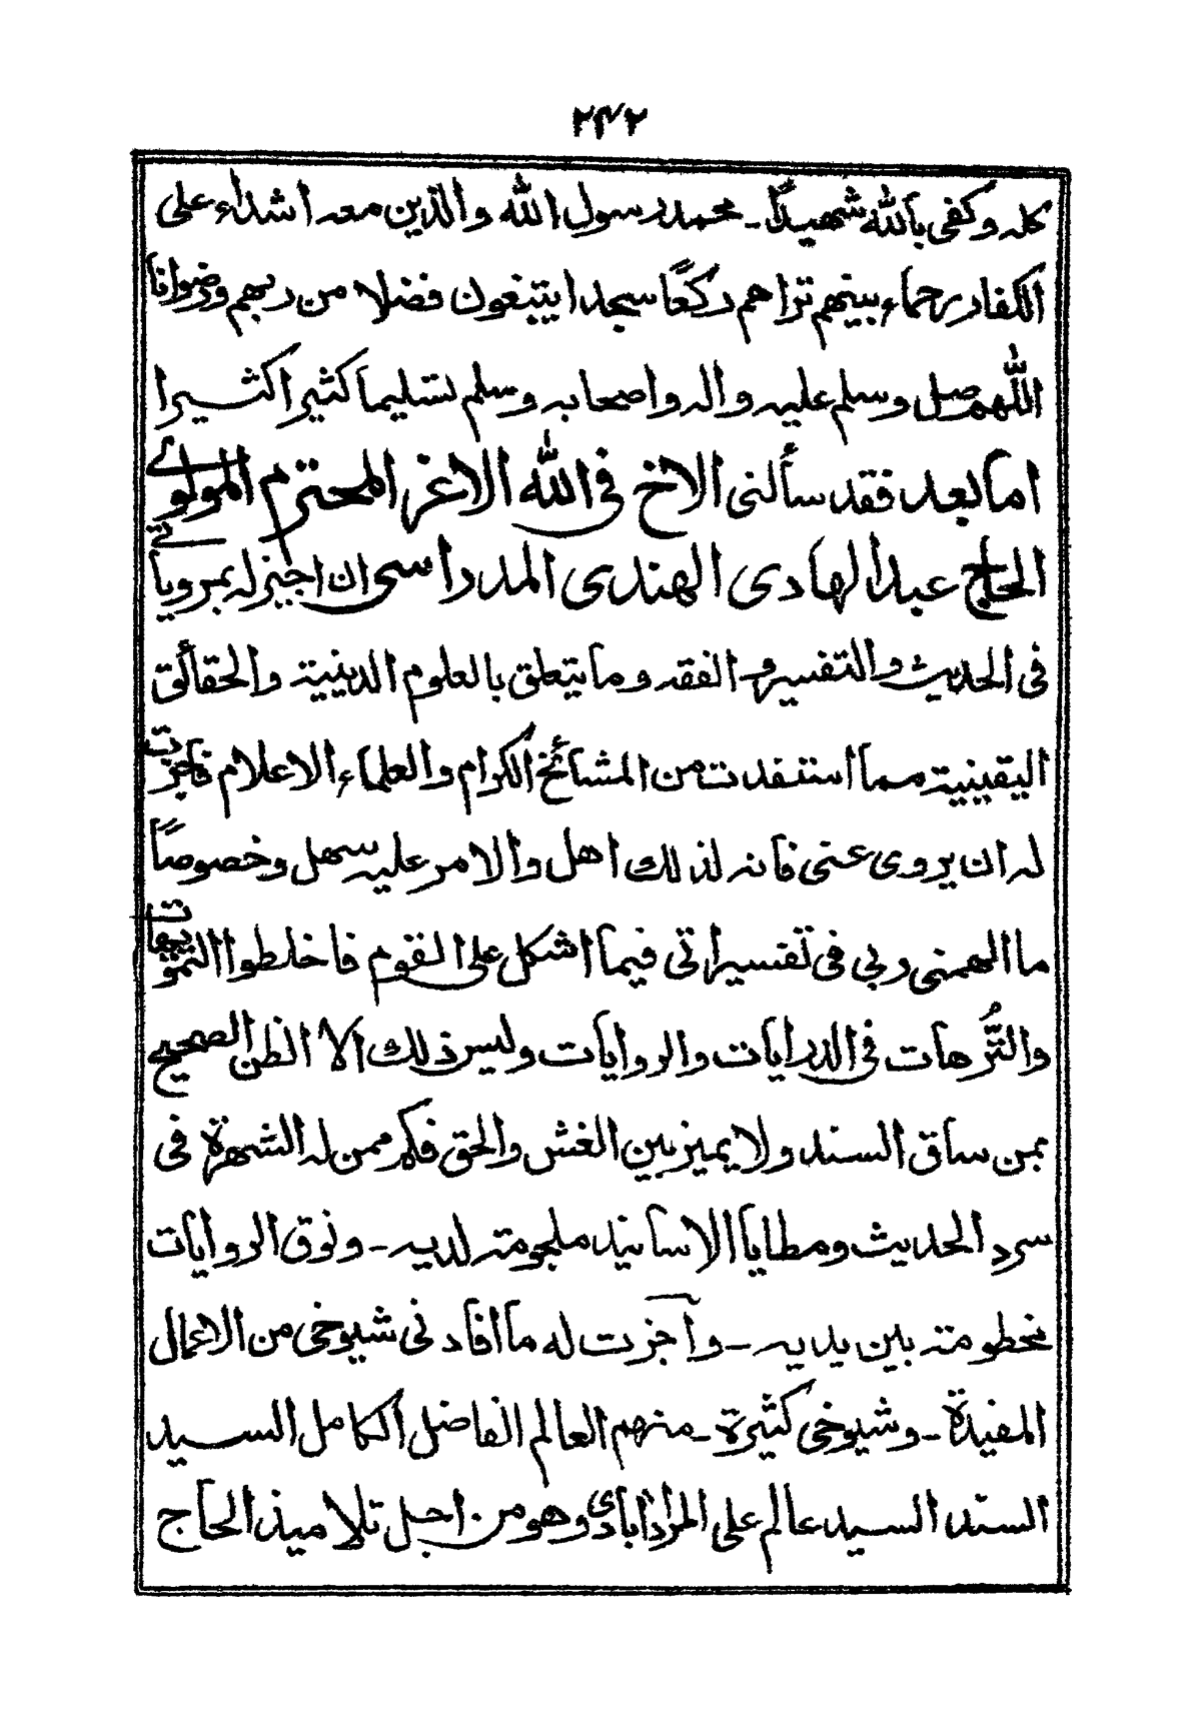 ۲۴۲
کله وکفی بالله شهیداً - محمد رسول الله والذین معه اشداء علی
الکفار رحماء بینهم تراهم رکعًا سجدا یبتغون فضلا من ربهم ورضوانا
اللهم صل وسلم علیه واله واصحابه وسلم تسلیما کثیرا کثیرا
اما بعد فقد سألنی الاخ فی الله الاغر المحترم المولوے
الحاج عبدالهادی الهندی المدراسی ان اجیزله بمرویاتے
فی الحدیث والتفسیر و الفقه وما یتعلق بالعلوم الدینیة والحقائق
الیقینیة مما استفدت من المشائخ الکرام والعلماء الاعلام فاجزت
له ان یروی عنی فانه لذلك اهل والامر علیه سهل وخصوصاً
ما الهمنی ربی فی تفسیراتی فیما اشکل علی القوم فاخلطوا التمویهات
والتُّرهات فی الدرایات والروایات ولیس ذلك الا الظن الصحیح
بمن ساق السند ولا یمیز بین الغش والحق فکم ممن له الشهرة فی
سرد الحدیث ومطایا الاسانید ملجومته لدیه - ونوق الروایات
مخطومته بین یدیه - وأجزت له ما افادنی شیوخی من الاعمال
المفیدة - وشیوخی کثیرة - منهم العالم الفاضل الکامل السید
السند السید عالم علی المرادابادی وهو من اجل تلامیذ الحاج